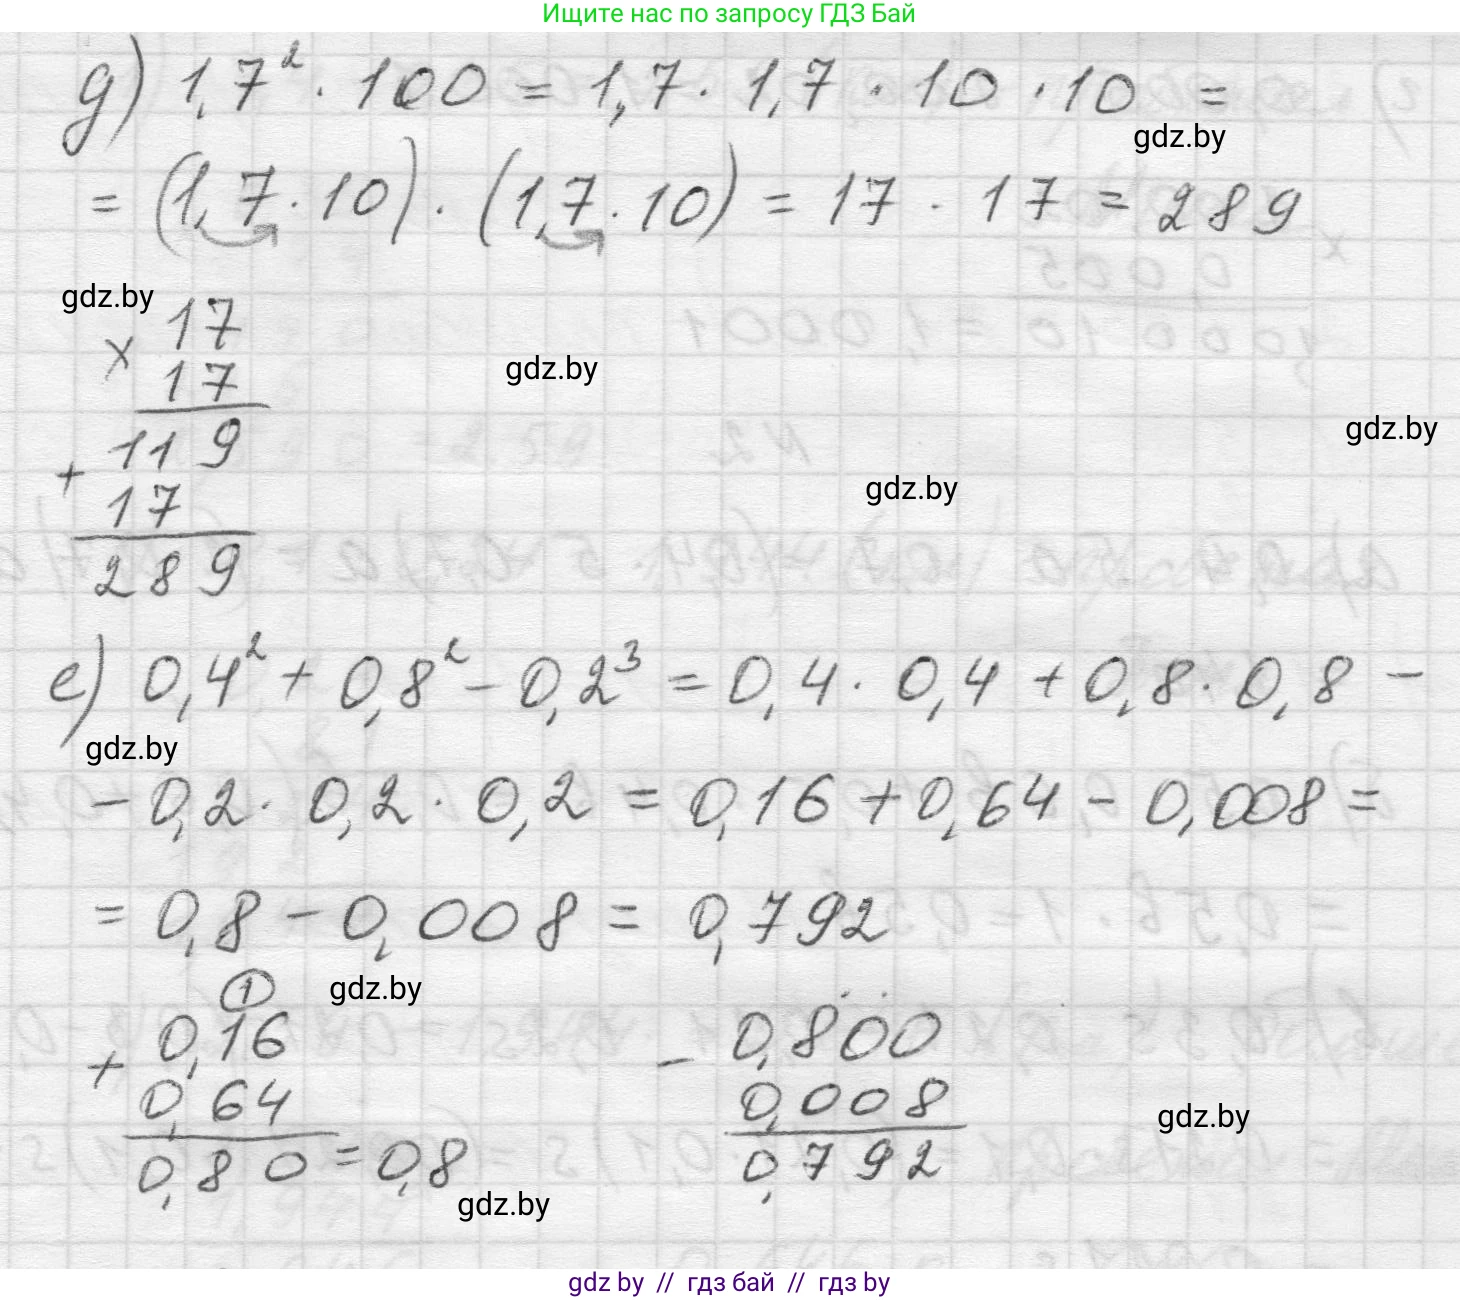 Ищите нас по запросу ГДЗ Бай
д) 1,7² · 100 = 1,7 · 1,7 · 10 · 10 =
gdz.by
= (1,7 · 10) · (1,7 · 10) = 17 · 17 = 289
gdz.by
× 17
17
gdz.by
119
gdz.by
+ 17
gdz.by
289
е) 0,4² + 0,8² - 0,2³ = 0,4 · 0,4 + 0,8 · 0,8 -
gdz.by
- 0,2 · 0,2 · 0,2 = 0,16 + 0,64 - 0,008 =
= 0,8 - 0,008 = 0,792
1
gdz.by
+ 0,16
0,64
0,80 = 0,8
- 0,800
0,008
0,792
gdz.by
gdz.by
gdz by // гдз бай // гдз by